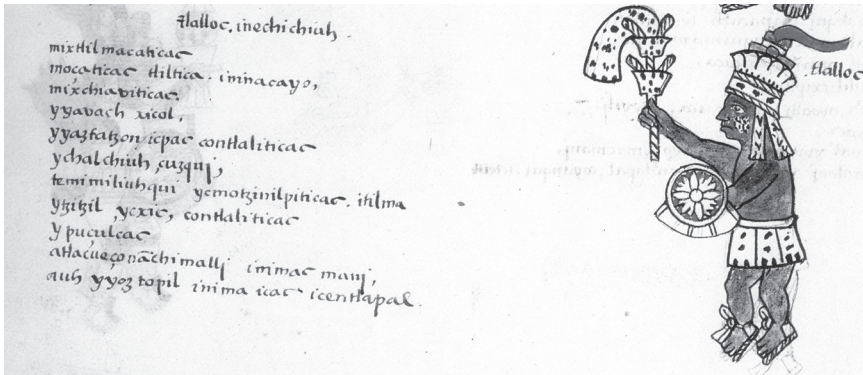 tlalloc. inechichiuh.
mixtlilmacaticac
moçaticac tliltica. ininacayo,
mixchiaviticac.
yyavach xicol,
yyaztatzon icpac contlaliticac
ychalchiuh cuzquj,
temimiliuhqui ycmotzinilpiticac. itilma
ytzitzil ycxic, contlaliticac
ypuçulcac
atlacueçonāchimallj inimac manj,
auh yyoztopil inimac icac icentlapal.
.tlalloc